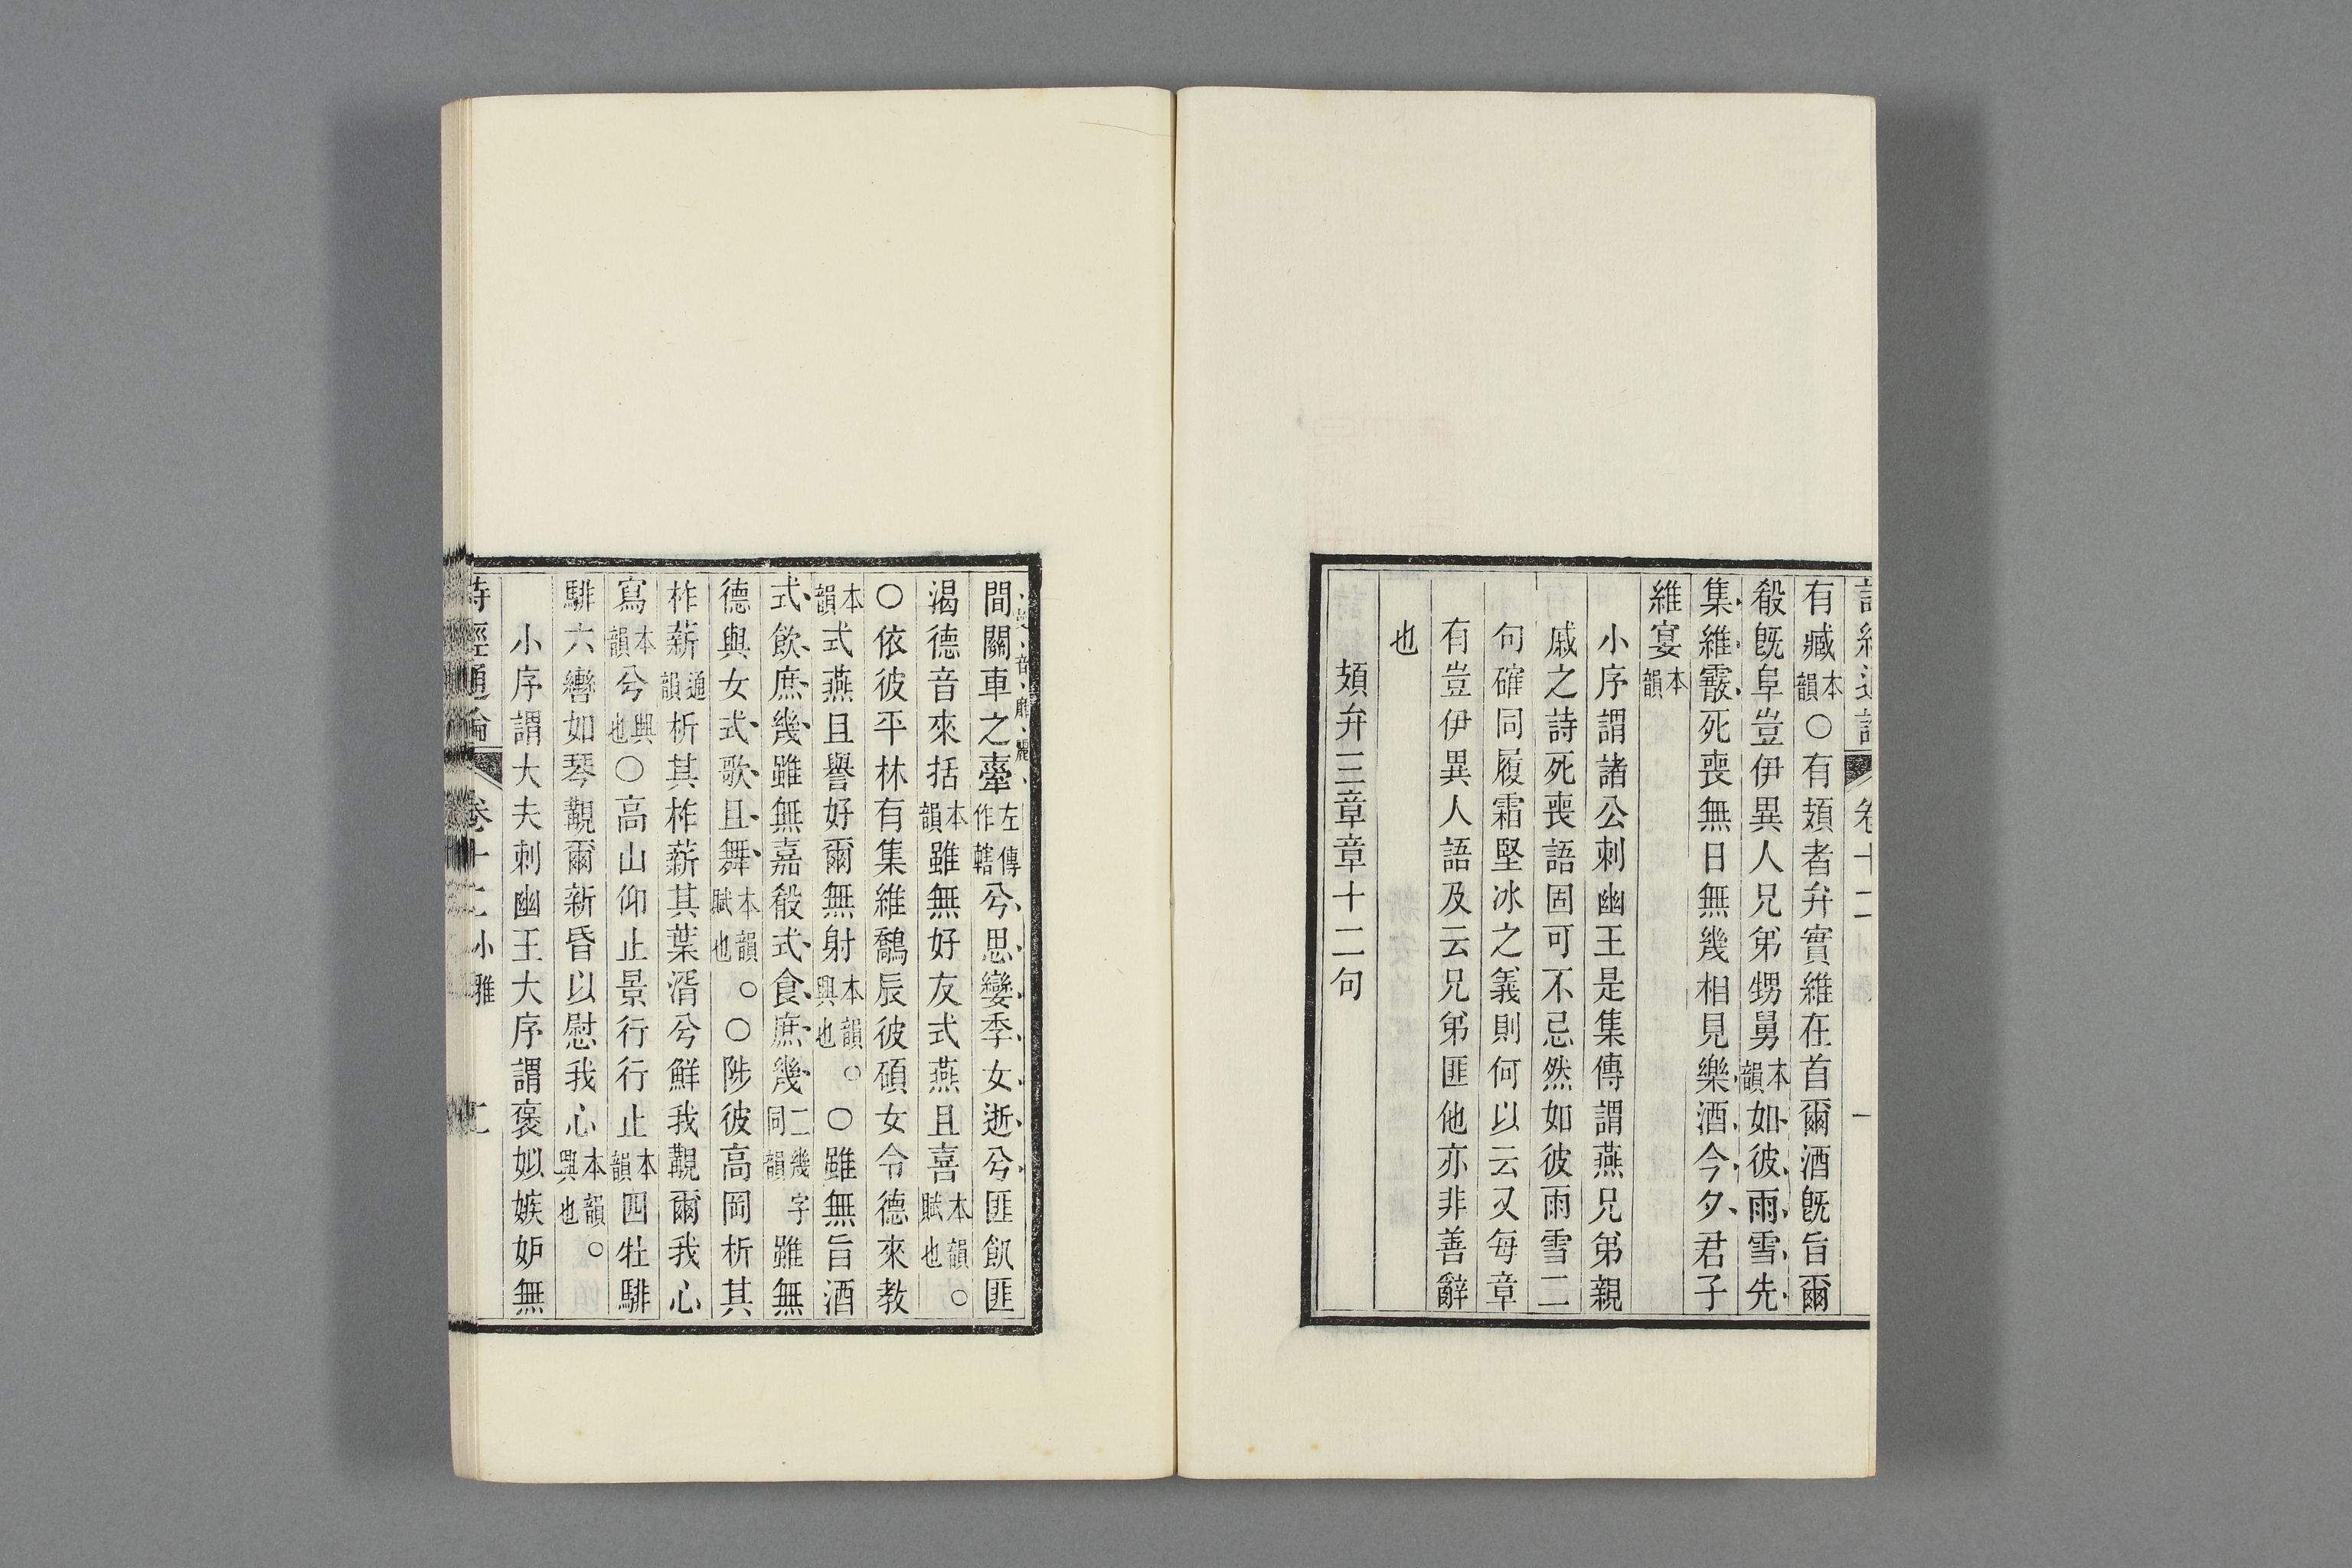 詩經通論 卷十二 小雅 一
有臧本韻○有頍者弁實維在首爾酒旣旨爾
殽旣阜豈伊異人兄弟甥舅本韻如彼雨雪先
集維霰死喪無日無幾相見樂酒今夕君子
維宴本韻
小序謂諸公刺幽王是集傳謂燕兄弟親
戚之詩死喪語固可不忌然如彼雨雪二
句確同履霜堅冰之義則何以云又每章
有豈伊異人語及云兄弟匪他亦非善辭
也
頍弁三章章十二句
間關車之舝左傳作轄兮思孌季女逝兮匪飢匪
渴德音來括本韻雖無好友式燕且喜本韻賦也。
○依彼平林有集維鷮辰彼碩女令德來教
本韻式燕且譽好爾無射本韻興也。○雖無旨酒
式飲庶幾雖無嘉殽式食庶幾二幾字同韻雖無
德與女式歌且舞本韻賦也。○陟彼高岡析其
柞薪通韻析其柞薪其葉湑兮鮮我覯爾我心
寫本韻兮興也○高山仰止景行行止本韻四牡騑
騑六轡如琴覯爾新昏以慰我心本韻興也。
小序謂大夫刺幽王大序謂褒姒嫉妒無
詩經通論 卷十二 小雅 二